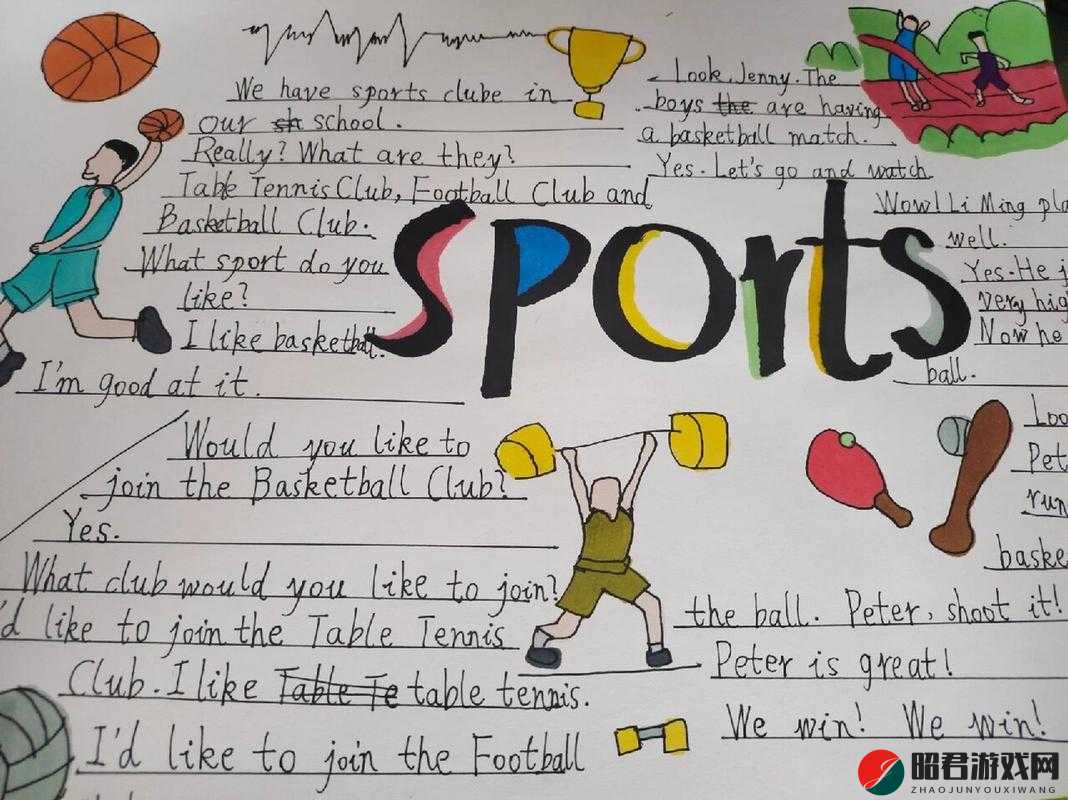 We have sports clube in
our sh school.
Really? What are they?
Table Tennis Club, Football Club and
Basketball Club.
What sport do you
like?
I like basketball.
I'm good at it.
Would you like to
join the Basketball Club?
Yes.
What club would you like to join?
'd like to join the Table Tennis
Club. I like Table Te table tennis.
I'd like to join the Football
sports
Look, Jenny. The
boys the are having
a basketball match.
Yes. Let's go and watch
Wow! Li Ming pla
well.
Yes. He j
very hig
Now he
ball.
Loo
Pet
run
baske
the ball. Peter, shoot it!
Peter is great!
We win! We win!
昭君游戏网
ZHAOJUNYOUXIWANG